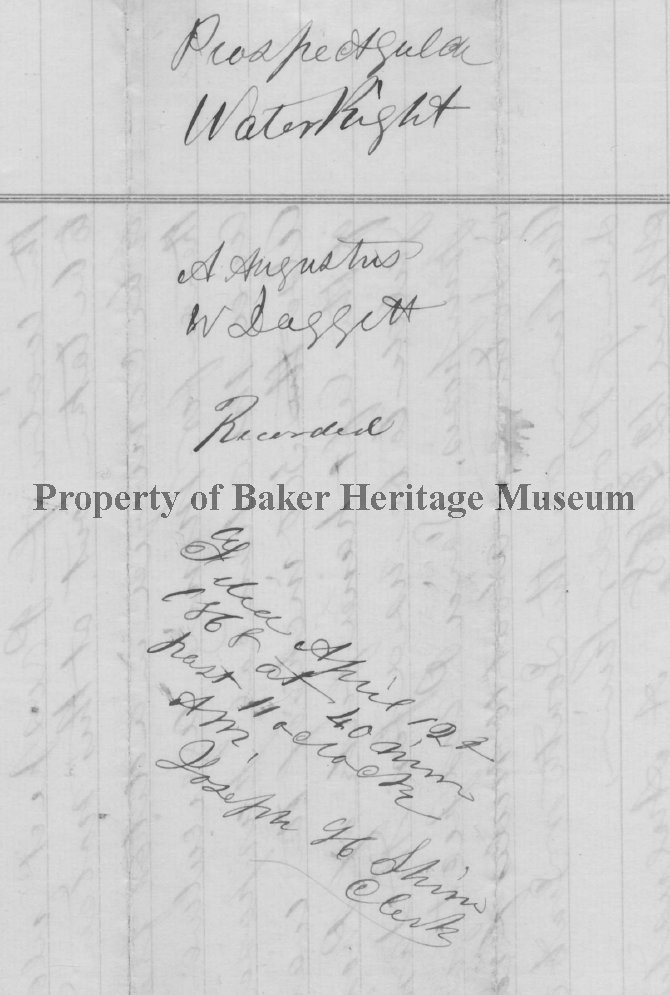 Prospect Gulch
Water Right
A Augustus
W Daggett
Recorded
Property of Baker Heritage Museum
Filed April 12th
1868 at 40 min
past 11 oclock
AM,
Joseph H Shinn
Clerk